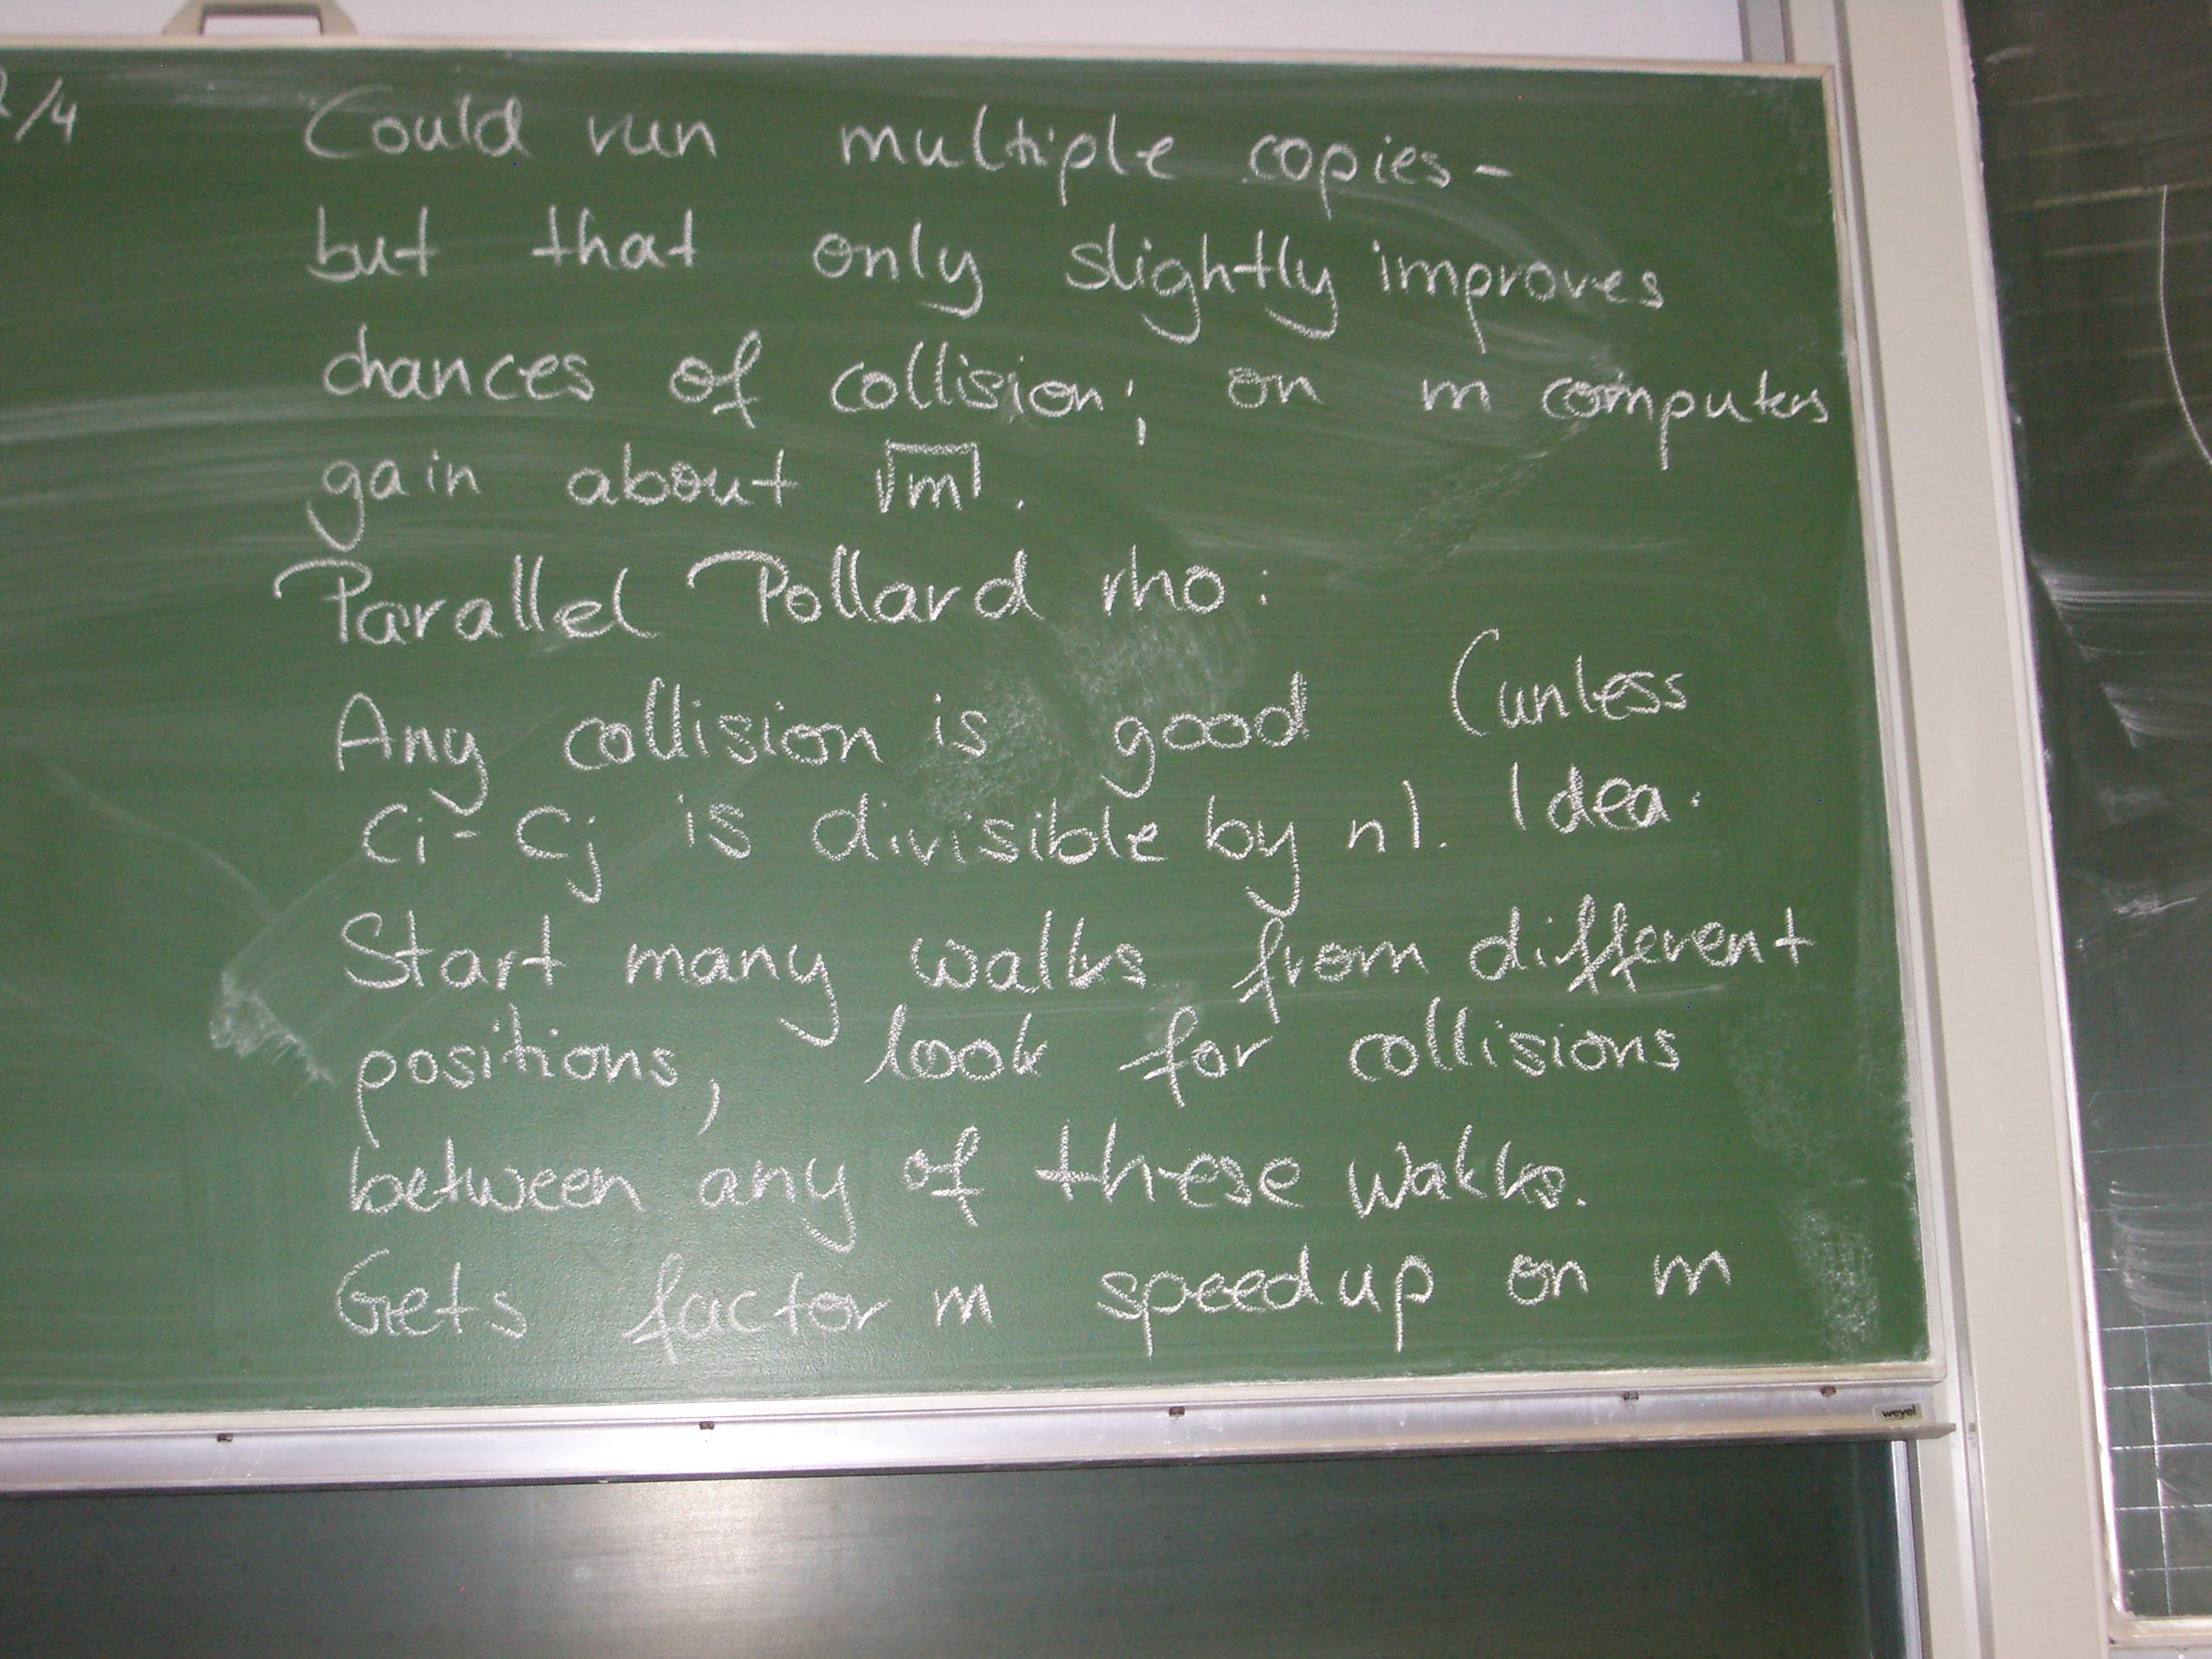 2/4
Could run multiple copies -
but that only slightly improves
chances of collision; on m computers
gain about √m.
Parallel Pollard rho:
Any collision is good (unless
ci - cj is divisible by n). Idea.
Start many walks from different
positions, look for collisions
between any of these walks.
Gets factor m speedup on m
weyel